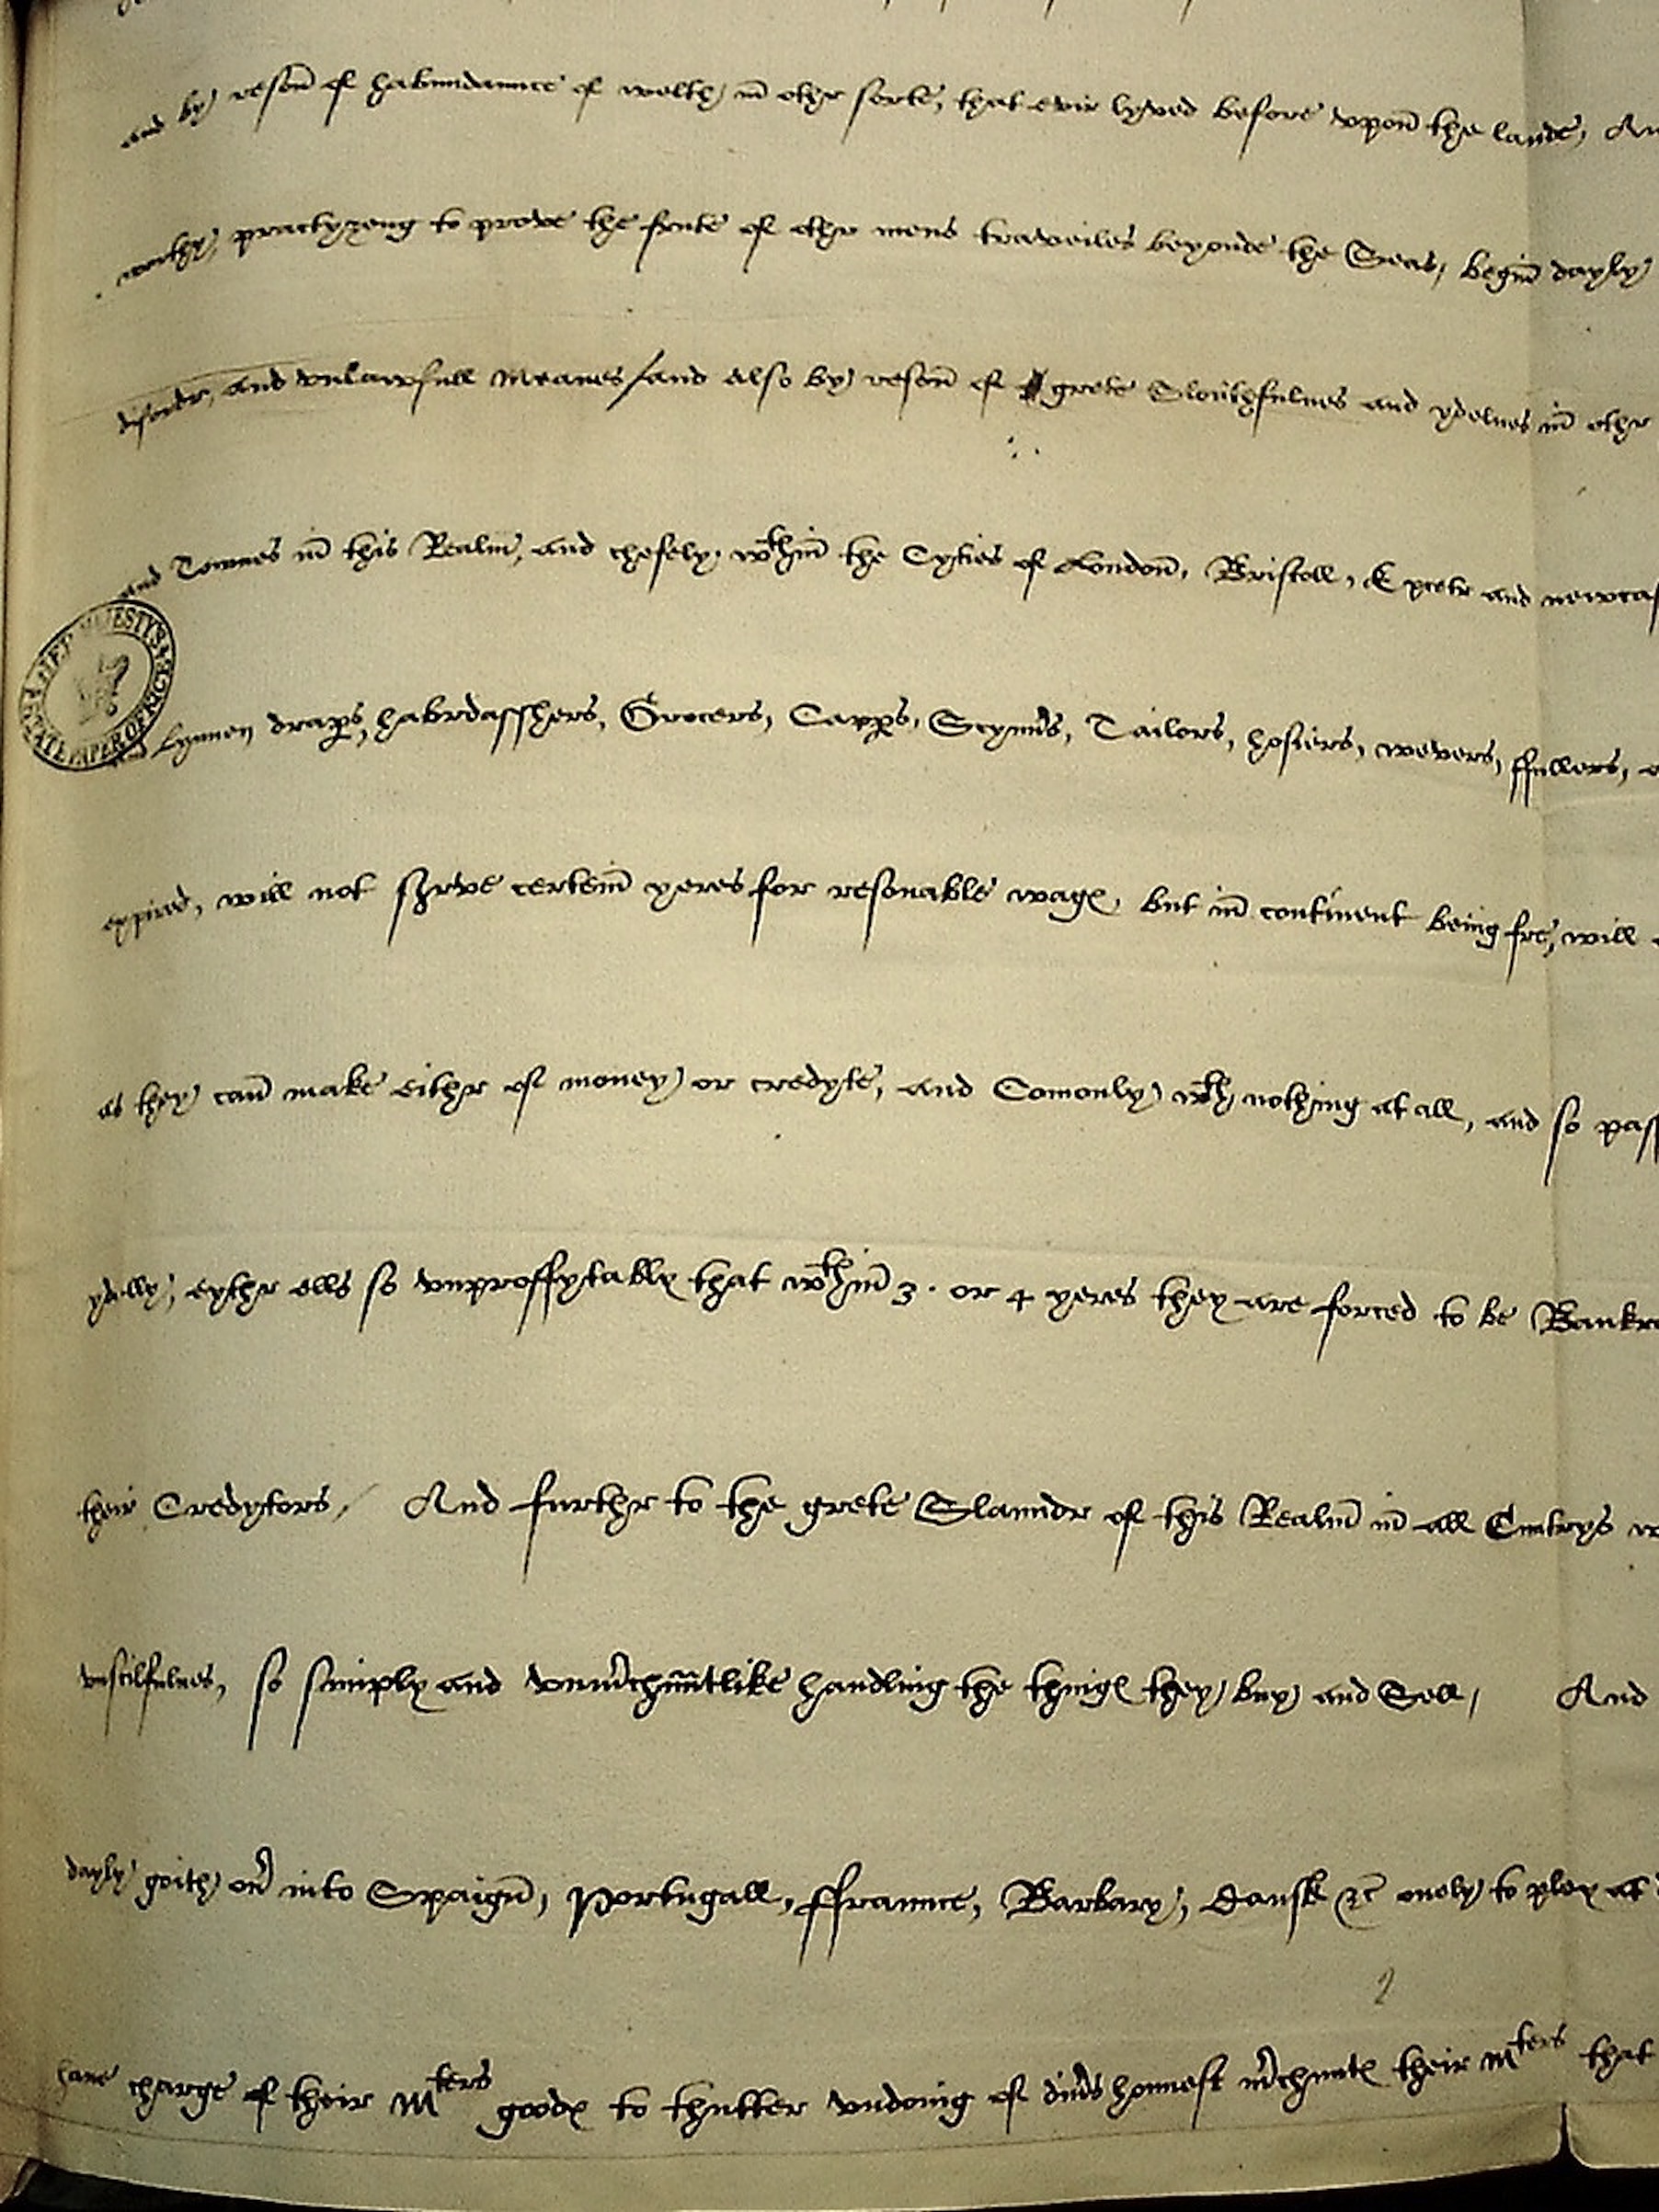 and by reson̄ of habundaunce of welth in̄ othr sorte, that evir lyved before vpon̄ the lande, An
worthy practyzeng to prove the frute of othr mens traveiles beyonde the Seas, begin̄ dayly
disordr, and vnlawfull Meanes / and also by reson̄ of grete Slouthfulnes and ydelnes in̄ othr
and Townes in̄ this Realm̄, and chefely wthin̄ the Cyties of London̄, Bristoll, Excetr and newcas
Lynnen drap̱s, habrdasshers, Grocers, Capp̱s, Scynn̄s, Tailors, hosiers, wevers, ffullers, a
expired, will not serve certein̄ yeres for resonable wagꝭ, but in̄ contīnent being fre, will
as they can̄ make eithr of money or credyte, and Comonly wth nothing at all, and so pass
ydelly, eythr ells so vnproffytably that wthin̄ 3. or 4 yeres they are forced to be Bankro
their Credytors / And furthr to the grete Slaundr of this Realm̄ in̄ all Cuntrys w
vnscilfulnes, so simply and vnm̄chun̄tlike handling the thingꝭ they buy and Sell / And
dayly goith on̄ into Spaign̄, Portugall, ffraunce, Barbary, dansk &c onely to play at
have charge of their Mters goodꝭ to thutter vndoing of div̄s honnest m̄chuntꝭ their Mters that
HER MAJESTY'S STATE PAPER OFFICE